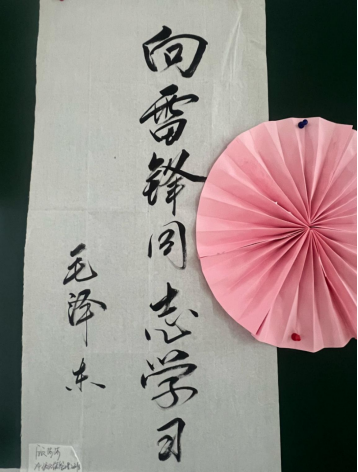 向雷锋同志学习
毛泽东